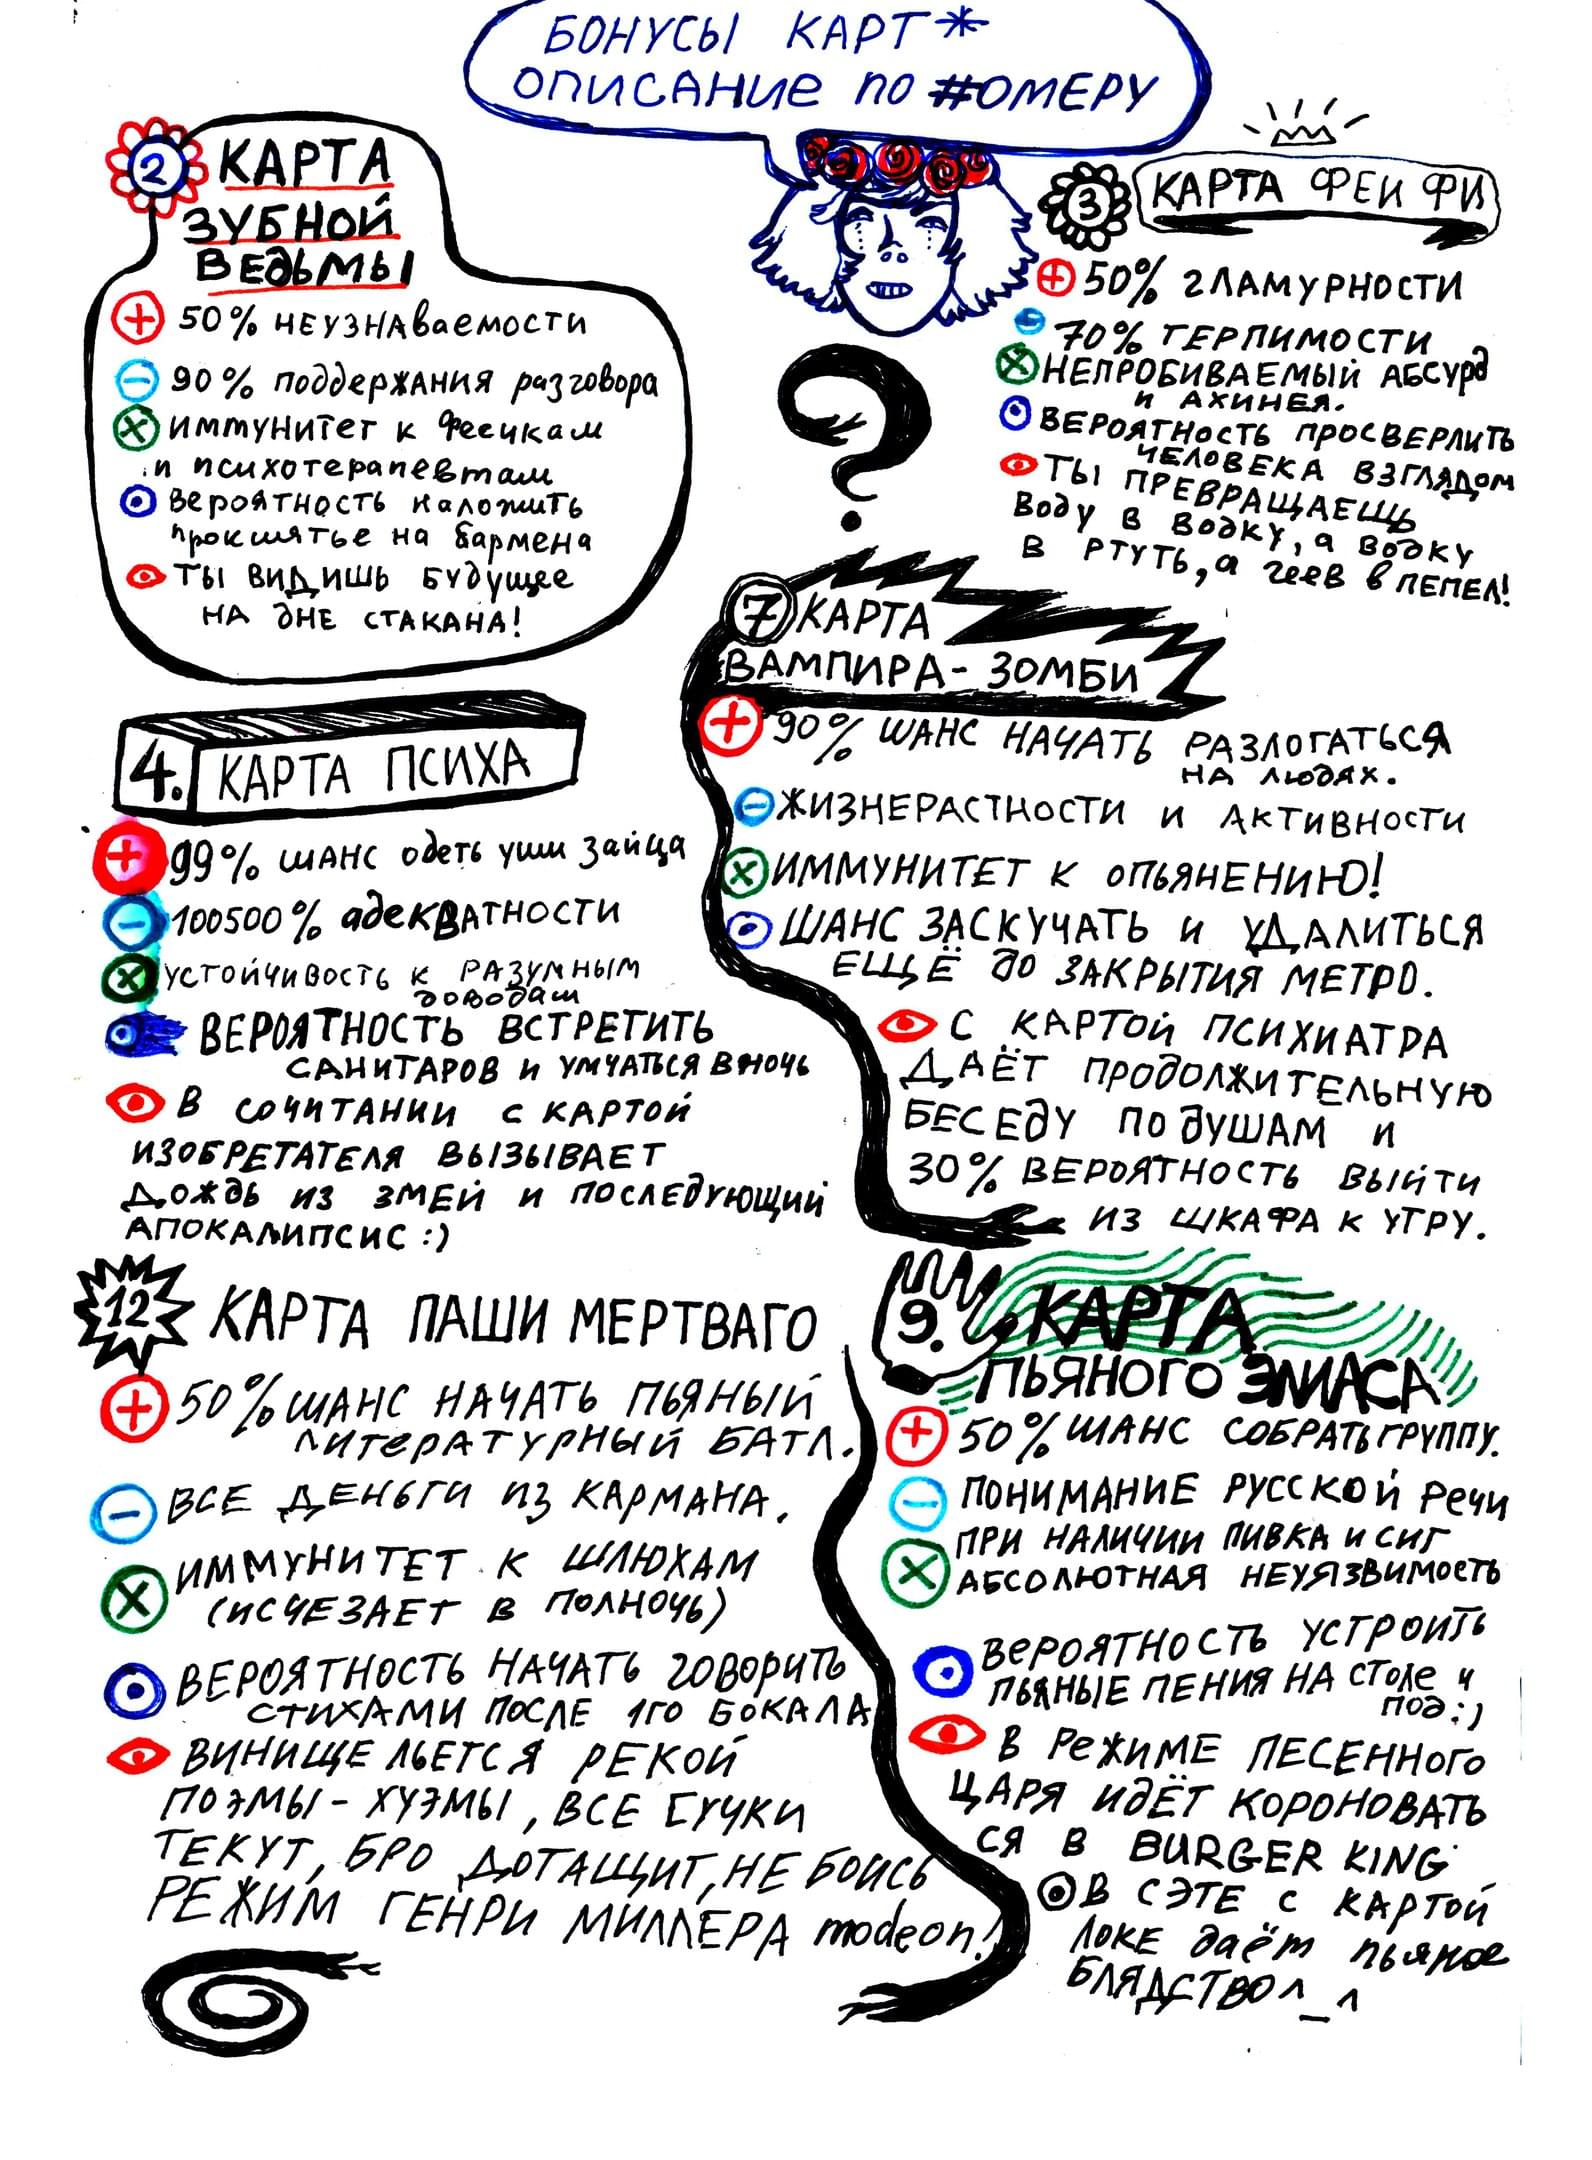 БОНУСЫ КАРТ*
ОПИСАНИЕ ПО #ОМЕРУ
2 КАРТА
ЗУБНОЙ
ВЕДЬМЫ
+ 50% НЕУЗНАВАЕМОСТИ
- 90% поддержания разговора
× ИММУНИТЕТ К феечкам
и психотерапевтам
вероятность наложить
проклятье на бармена
ТЫ ВИДИШЬ БУДУЩЕЕ
НА ДНЕ СТАКАНА!
3 КАРТА ФЕИ ФИ
+ 50% ГЛАМУРНОСТИ
- 70% ТЕРПИМОСТИ
× НЕПРОБИВАЕМЫЙ АБСУРД
И АХИНЕЯ.
ВЕРОЯТНОСТЬ ПРОСВЕРЛИТЬ
ЧЕЛОВЕКА ВЗГЛЯДОМ
ТЫ ПРЕВРАЩАЕЩЬ
ВОДУ В ВОДКУ, а ВОДКУ
В РТУТЬ, а геев в ПЕПЕЛ!
4. КАРТА ПСИХА
+ 99% ШАНС одеть уши зайца
- 100500% адеквАТНОСТИ
× УСТОЙЧИВОСТЬ К РАЗУМНЫМ
доводам
ВЕРОЯТНОСТЬ ВСТРЕТИТЬ
САНИТАРОВ И УМЧАТЬСЯ В НОЧЬ
В СОЧИТАНИИ С КАРТОЙ
ИЗОБРЕТАТЕЛЯ ВЫЗЫВАЕТ
ДОЖДЬ ИЗ ЗМЕЙ И ПОСЛЕДУЮЩИЙ
АПОКАЛИПСИС :)
7 КАРТА
ВАМПИРА-ЗОМБИ
+ 90% ШАНС НАЧАТЬ РАЗЛОГАТЬСЯ
НА ЛЮДЯХ.
- ЖИЗНЕРАСТНОСТИ И АКТИВНОСТИ
× ИММУНИТЕТ К ОПЬЯНЕНИЮ!
ШАНС ЗАСКУЧАТЬ И УДАЛИТЬСЯ
ЕЩЁ ДО ЗАКРЫТИЯ МЕТРО.
С КАРТОЙ ПСИХИАТРА
ДАЁТ ПРОДОЛЖИТЕЛЬНУЮ
БЕСЕДУ ПО ДУШАМ И
30% ВЕРОЯТНОСТЬ ВЫЙТИ
ИЗ ШКАФА К УТРУ.
12 КАРТА ПАШИ МЕРТВАГО
+ 50% ШАНС НАЧАТЬ ПЬЯНЫЙ
ЛИТЕРАТУРНЫЙ БАТЛ.
- ВСЕ ДЕНЬГИ ИЗ КАРМАНА.
× ИММУНИТЕТ К ШЛЮХАМ
(ИСЧЕЗАЕТ В ПОЛНОЧЬ)
ВЕРОЯТНОСТЬ НАЧАТЬ ГОВОРИТЬ
СТИХАМИ ПОСЛЕ 1ГО БОКАЛА
ВИНИЩЕ ЛЬЕТСЯ РЕКОЙ
ПОЭМЫ-ХУЭМЫ, ВСЕ СУЧКИ
ТЕКУТ, БРО ДОТАЩИТ, НЕ БОИСЬ
РЕЖИМ ГЕНРИ МИЛЛЕРА modeon!
9. КАРТА
ПЬЯНОГО ЭЛИАСА
+ 50% ШАНС СОБРАТЬ ГРУППУ.
- ПОНИМАНИЕ РУССКОЙ РЕЧИ
× ПРИ НАЛИЧИИ ПИВКА И СИГ
АБСОЛЮТНАЯ НЕУЯЗВИМОСТЬ
ВЕРОЯТНОСТЬ УСТРОИТЬ
ПЬЯНЫЕ ПЕНИЯ НА СТОЛЕ И
ПОД :)
В РЕЖИМЕ ПЕСЕННОГО
ЦАРЯ ИДЁТ КОРОНОВАТЬ
СЯ В BURGER KING
В СЭТЕ С КАРТОЙ
ЛОКЕ даёт пьяное
БЛЯДСТВО ^_^